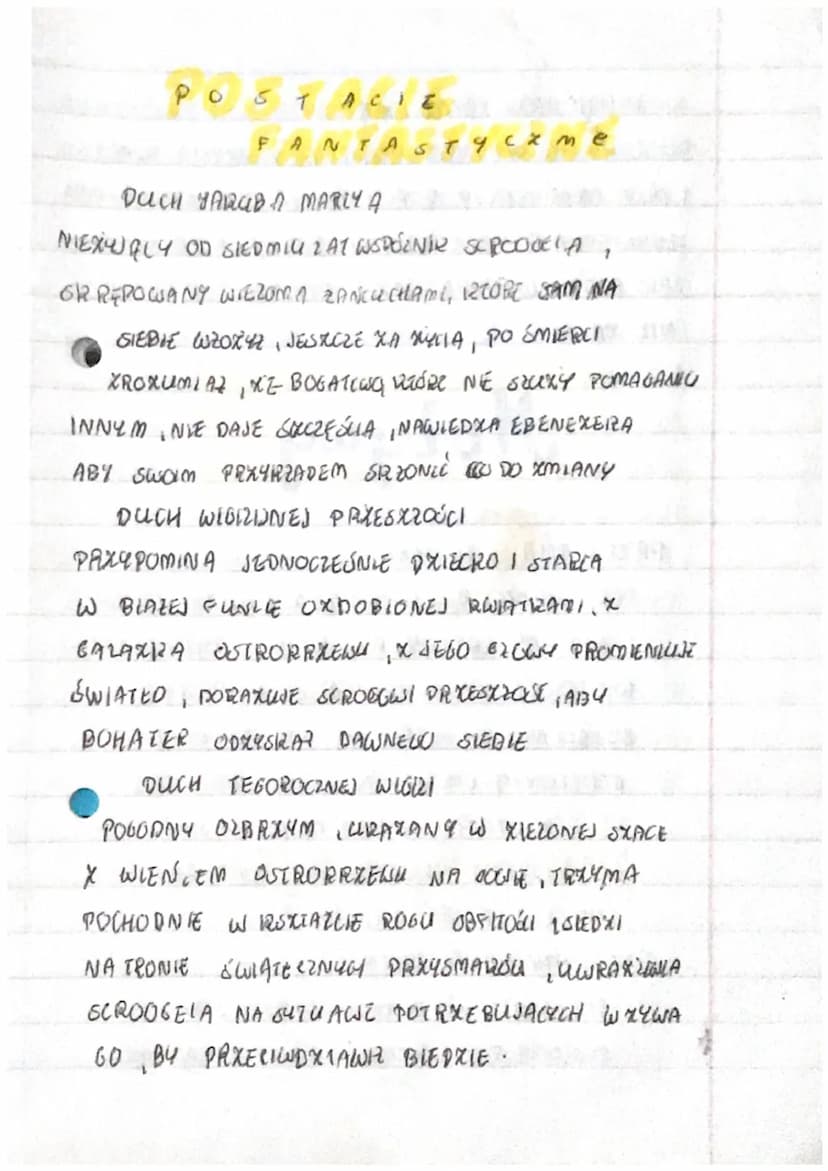 POSTACIE
FANTASTYCZNE
DUCH JAKUBA MARLYA
NIEŻYJĄCY OD SIEDMIU LAT WSPÓLNIK SCROOGE'A,
SKRĘPOWANY WIELOMA ŁAŃCUCHAMI, KTÓRE SAM NA
SIEBIE WŁOŻYŁ, JESZCZE ZA ŻYCIA, PO ŚMIERCI
ZROZUMIAŁ, ŻE BOGATCWA KTÓRE NIE SŁUŻY POMAGANIU
INNYM, NIE DAJE SZCZĘŚCIA, NAWIEDZA EBENEZERA
ABY SWOIM PRZYKŁADEM SKŁONIĆ GO DO ZMIANY
DUCH WIGILIJNEJ PRZESZŁOŚCI
PRZYPOMINA JEDNOCZEŚNIE DZIECKO I STARCA
W BIAŁEJ TUNICE OZDOBIONEJ KWIATKAMI, Z
GAŁĄZKĄ OSTROKRZEWU, Z JEGO GŁOWY PROMIENIUJE
ŚWIATŁO, POKAZUJE SCROOGOWI PRZESZŁOŚĆ, ABY
BOHATER ODZYSKAŁ DAWNEGO SIEBIE
DUCH TEGOROCZNEJ WIGILI
POGODNY OLBRZYM, UKAZANY W ZIELONEJ SZACE
Z WIEŃCEM OSTROKRZEWU NA GŁOWIE, TRZYMA
POCHODNIE W KSZTAŁCIE ROGU OBFITOŚCI I SIEDZI
NA TRONIE ŚWIĄTECZNYCH PRZYSMAKÓW, UWRAŻLIWIA
SCROOGE'A NA SYTUACJE POTRZEBUJĄCYCH WZYWA
GO, BY PRZECIWDZIAŁAŁ BIEDZIE.